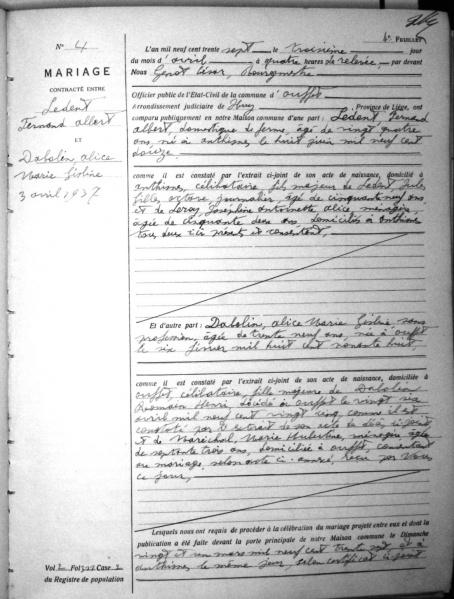 6e FEUILLET
N° 4
MARIAGE
CONTRACTÉ ENTRE
Ledent
Fernand Albert
ET
Dabolin, Alice
Marie Gisline
3 avril 1937
L'an mil neuf cent trente sept le troisième jour
du mois d'avril à quatre heures de relevée, par devant
Nous Genot César, Bourgmestre
Officier public de l'Etat-Civil de la commune d'Ouffet
Arrondissement judiciaire de Huy Province de Liège, ont
comparu publiquement en notre Maison commune d'une part : Ledent Fernand
Albert, domestique de ferme, âgé de vingt quatre
ans, né à Anthisnes, le huit juin mil neuf cent
douze.
comme il est constaté par l'extrait ci-joint de son acte de naissance, domicilié à
Anthisnes, célibataire, fils majeur de Ledent, Jules,
journalier, âgé de cinquante neuf ans
et de Joséphine Antoinette Alice, ménagère,
âgée de cinquante deux ans, domiciliés à Anthisnes
tous deux ici présents et consentant.
Et d'autre part : Dabolin, Alice Marie Gisline sans
profession, âgée de trente neuf ans, née à Ouffet
le six février mil huit cent nonante huit
comme il est constaté par l'extrait ci-joint de son acte de naissance, domiciliée à
Ouffet, célibataire, fille majeure de Dabolin
Henri, décédé à Ouffet le vingt six
avril mil neuf cent vingt cinq comme il est
constaté par l'extrait de son acte de décès ci-joint
et de Maréchal, Marie Hubertine, ménagère âgée
de septante trois ans, domiciliée à Ouffet, consentant
au mariage, selon acte ci-annexé, reçu par Nous
ce jour.
Lesquels nous ont requis de procéder à la célébration du mariage projeté entre eux et dont la
publication a été faite devant la porte principale de notre Maison commune le Dimanche
vingt et un mars mil neuf cent trente sept et à
Anthisnes le même jour, selon certificat ci-joint
Vol 2 Fol 322 Case 2
du Registre de population